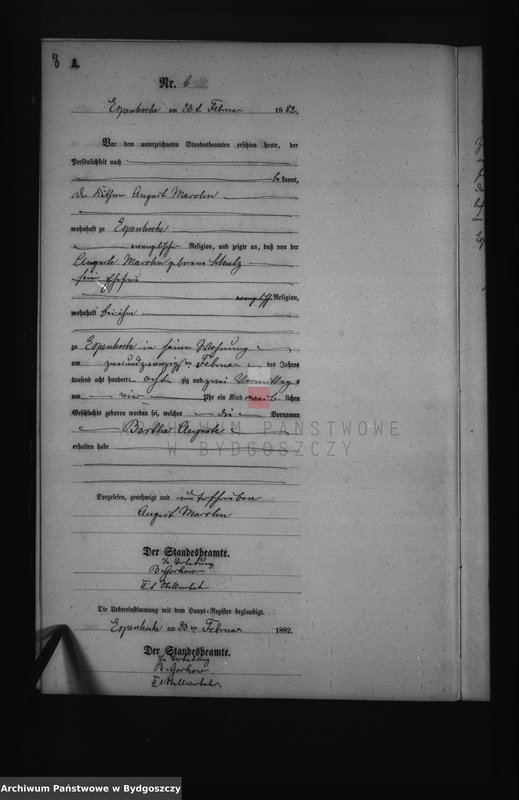 8
A.
Nr. 6
am 23 t Februar 1882.
Vor dem unterzeichneten Standesbeamten erschien heute, der
Persönlichkeit nach
be kannt,
August Marohn
wohnhaft zu
evangelischer Religion, und zeigte an, daß von der
Auguste Marohn geborene Schulz
seine Ehefrau
evangelisch Religion,
wohnhaft bei ihm
zu in seiner Wohnung
am zweiundzwanzigsten Februar des Jahres
tausend acht hundert acht zig und zwei Vormittag s
um vier Uhr ein Kind weib lichen
Geschlechts geboren worden sei, welches die Vornamen
Bertha Auguste
erhalten habe
Vorgelesen, genehmigt und unterschrieben
August Marohn
Der Standesbeamte.
In Vertretung
B. Gorkow
Die Uebereinstimmung mit dem Haupt-Register beglaubigt.
am 23 ten Februar 1882.
Der Standesbeamte.
In Vertretung
B. Gorkow
ARCHIWUM PAŃSTWOWE
W BYDGOSZCZY
Archiwum Państwowe w Bydgoszczy